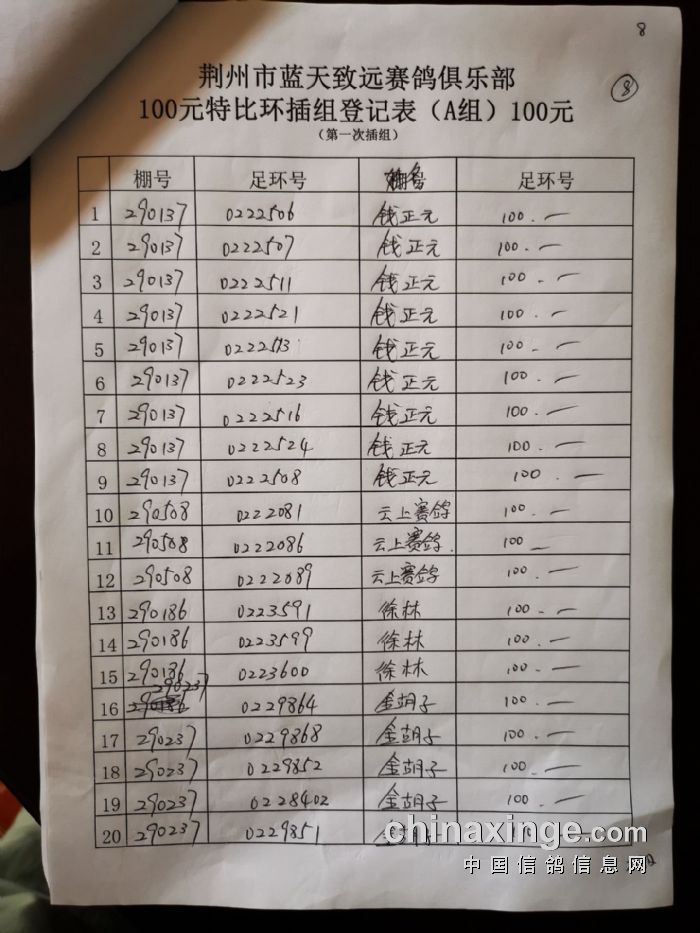 8
荆州市蓝天致远赛鸽俱乐部
⑧
100元特比环插组登记表（A组）100元
（第一次插组）
棚号 足环号 足环号
1 290137 0222506 钱正元 100.一
2 290137 0222507 钱正元 100.一
3 290137 0222511 钱正元 100.一
4 290137 0222521 钱正元 100.一
5 290137 0222513 钱正元 100.一
6 290137 0222523 钱正元 100.一
7 290137 0222516 钱正元 100.一
8 290137 0222524 钱正元 100.一
9 290137 0222508 钱正元 100.一
10 290508 0222081 云上赛鸽 100.一
11 290508 0222086 云上赛鸽. 100一
12 290508 0222089 云上赛鸽 100.一
13 290186 0223591 徐林 100.一
14 290186 0223599 徐林 100.一
15 290186 0223600 徐林 100.一
16 290237 0229864 金胡子 100.一
17 290237 0229868 金胡子 100.一
18 290237 0229852 金胡子 100.一
19 290237 0228402 金胡子 100.一
20 290237 0229851 金胡子 100.一
chinaxinge.com
中国信鸽信息网